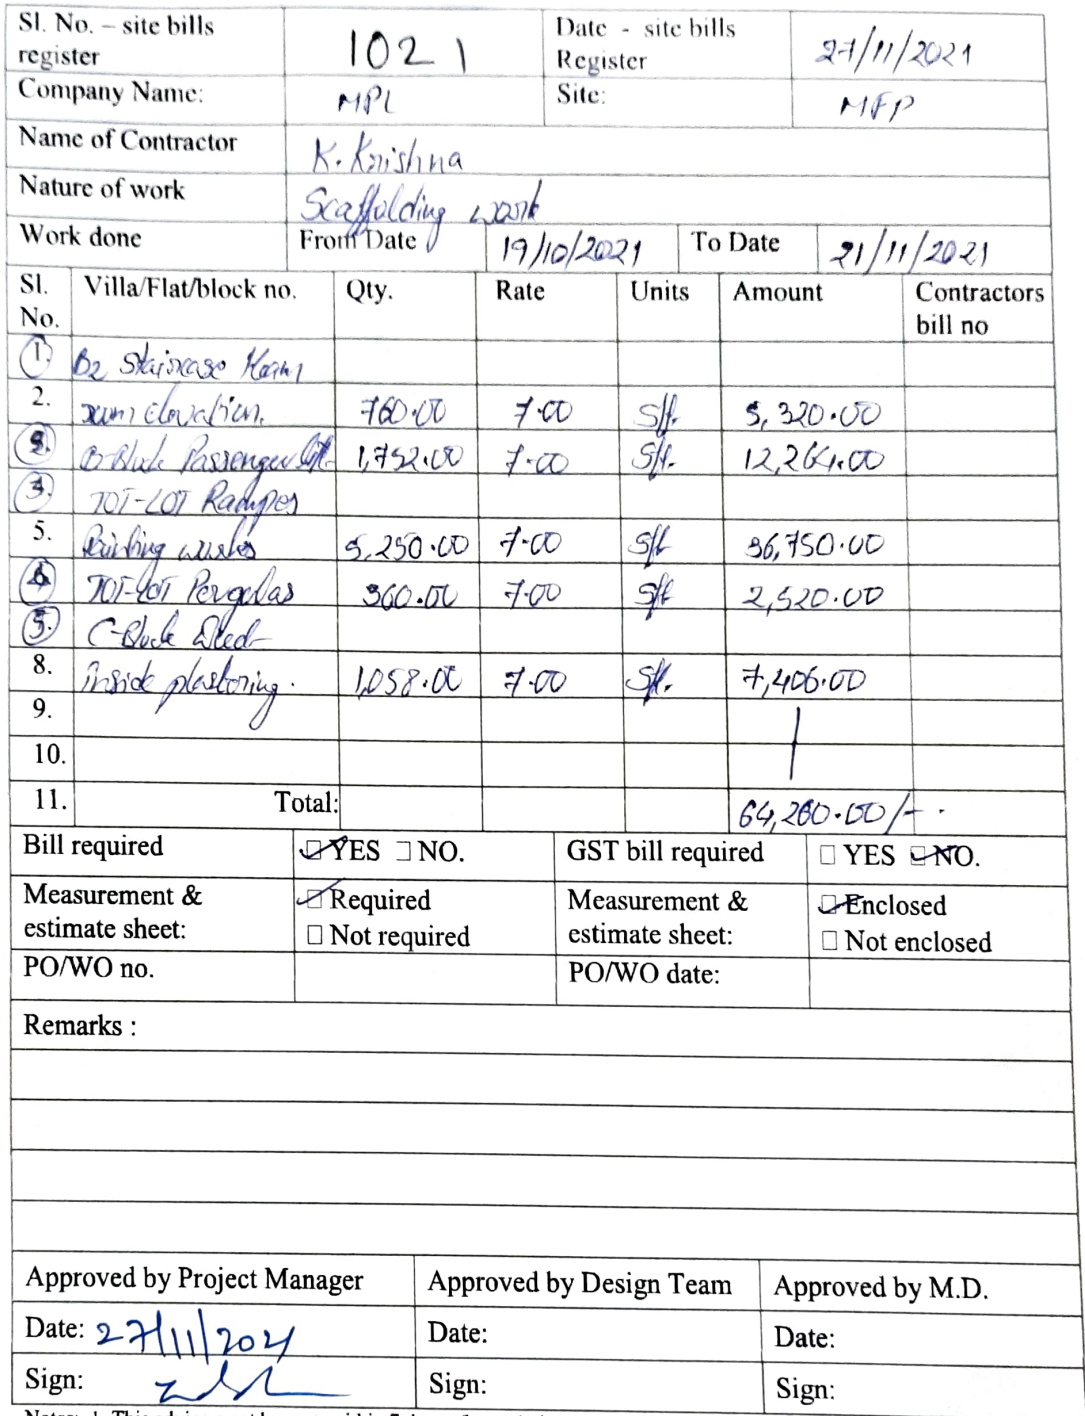 Sl. No. – site bills register 1021 Date - site bills Register 27/11/2021
Company Name: MPL Site: MFP
Name of Contractor K. Krishna
Nature of work Scaffolding work
Work done From Date 19/10/2021 To Date 21/11/2021
Sl. No. Villa/Flat/block no. Qty. Rate Units Amount Contractors bill no
1. B2 Staircase
2. Elevation. 760.00 7.00 Sft. 5,320.00
2. B-Block Passenger lift. 1,752.00 7.00 Sft. 12,264.00
3. TOT-LOT
5. Painting works 5,250.00 7.00 Sft 36,750.00
4. TOT-LOT Pergolas 360.00 7.00 Sft 2,520.00
5. C-Block
8. inside plastering. 1,058.00 7.00 Sft. 7,406.00
9.
10.
11. Total: 64,260.00/-
Bill required YES NO. GST bill required YES NO.
Measurement & estimate sheet: Required Measurement & estimate sheet: Enclosed
Not required Not enclosed
PO/WO no. PO/WO date:
Remarks :
Approved by Project Manager Approved by Design Team Approved by M.D.
Date: 27/11/2021 Date: Date:
Sign: Sign: Sign: